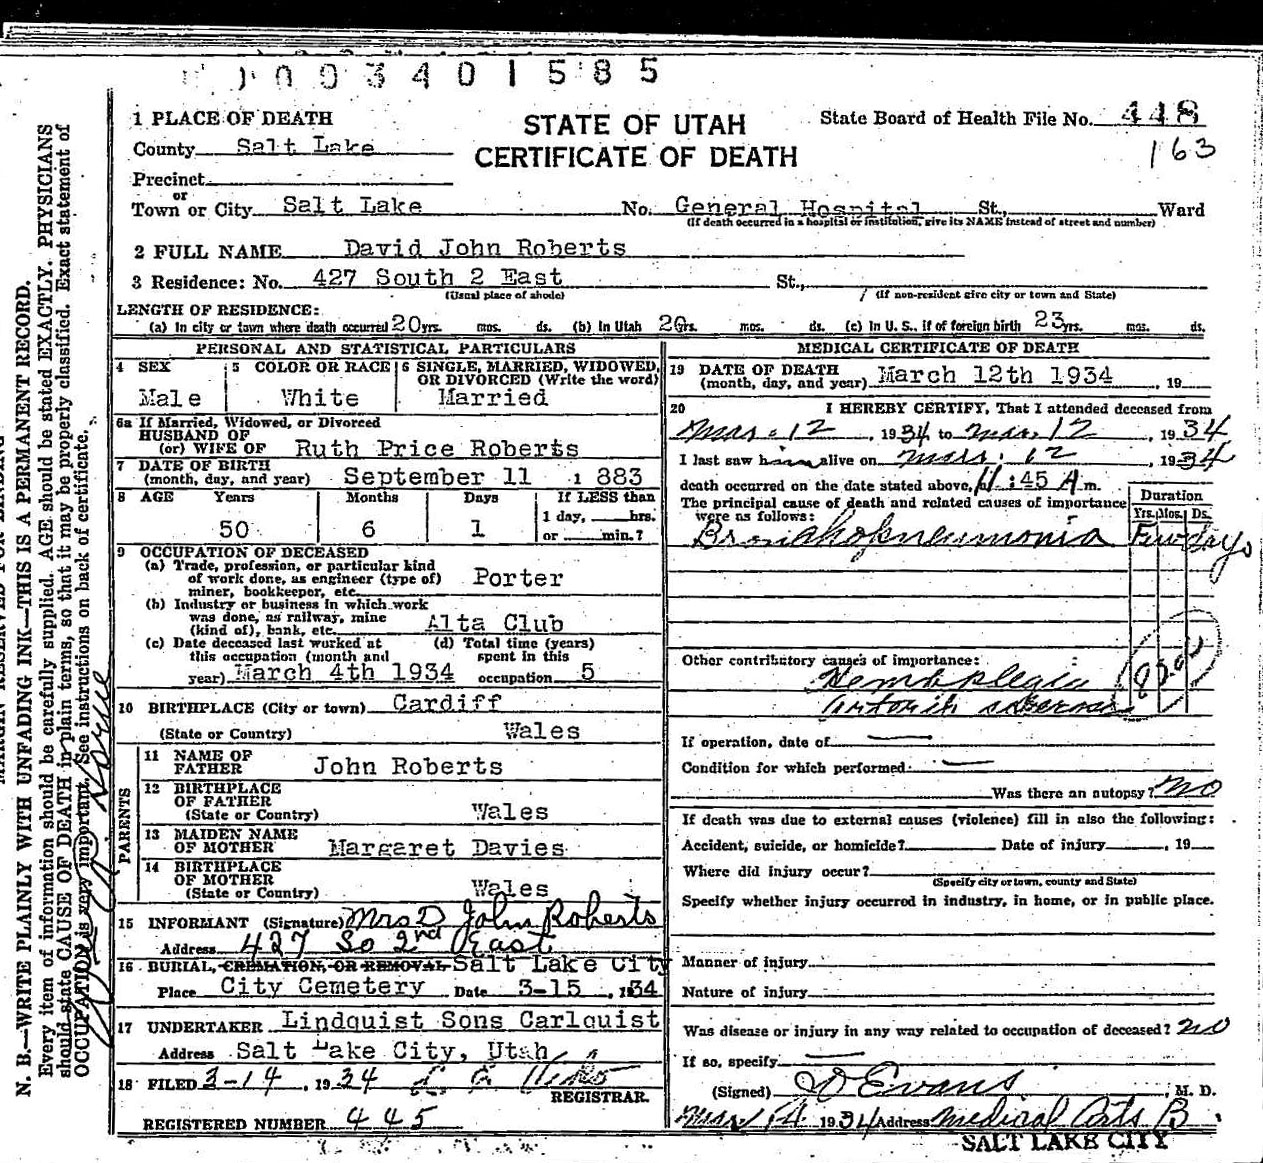 003401585
1 PLACE OF DEATH
County Salt Lake
Precinct
or
Town or City Salt Lake No. General Hospital St., Ward
(If death occurred in a hospital or institution, give its NAME instead of street and number)
STATE OF UTAH
CERTIFICATE OF DEATH
State Board of Health File No. 448
163
2 FULL NAME David John Roberts
3 Residence: No. 427 South 2 East St.,
(Usual place of abode) (If non-resident give city or town and State)
LENGTH OF RESIDENCE:
(a) In city or town where death occurred 20 yrs. mos. ds. (b) In Utah 20 yrs. mos. ds. (c) In U. S., if of foreign birth 23 yrs. mos. ds.
PERSONAL AND STATISTICAL PARTICULARS
4 SEX
Male
5 COLOR OR RACE
White
6 SINGLE, MARRIED, WIDOWED, OR DIVORCED (Write the word)
Married
6a If Married, Widowed, or Divorced
HUSBAND OF
(or) WIFE OF Ruth Price Roberts
7 DATE OF BIRTH
(month, day, and year) September 11 1883
8 AGE Years Months Days If LESS than
1 day, hrs.
50 6 1 or min.?
9 OCCUPATION OF DECEASED
(a) Trade, profession, or particular kind
of work done, as engineer (type of)
miner, bookkeeper, etc. Porter
(b) Industry or business in which work
was done, as railway, mine
(kind of), bank, etc. Alta Club
(c) Date deceased last worked at
this occupation (month and
year) March 4th 1934
(d) Total time (years)
spent in this
occupation 5
10 BIRTHPLACE (City or town) Cardiff
(State or Country) Wales
PARENTS
11 NAME OF
FATHER John Roberts
12 BIRTHPLACE
OF FATHER
(State or Country) Wales
13 MAIDEN NAME
OF MOTHER Margaret Davies
14 BIRTHPLACE
OF MOTHER
(State or Country) Wales
15 INFORMANT (Signature) Mrs D John Roberts
Address 427 So 2nd East
16 BURIAL, CREMATION, OR REMOVAL Salt Lake City
Place City Cemetery Date 3-15, 1934
17 UNDERTAKER Lindquist Sons Carlquist
Address Salt Lake City, Utah
18 FILED 3-14, 1934
REGISTRAR.
REGISTERED NUMBER 445
MEDICAL CERTIFICATE OF DEATH
19 DATE OF DEATH
(month, day, and year) March 12th 1934, 19
20 I HEREBY CERTIFY, That I attended deceased from
Mar. 12, 1934 to Mar. 12, 1934
I last saw him alive on Mar. 12, 1934
death occurred on the date stated above, 11:45 A m.
The principal cause of death and related causes of importance
were as follows:
Duration
Yrs. Mos. Ds.
Bronchopneumonia Few days
Other contributory causes of importance:
Hemiplegia
If operation, date of
Condition for which performed
Was there an autopsy? No
If death was due to external causes (violence) fill in also the following:
Accident, suicide, or homicide? Date of injury , 19
Where did injury occur?
(Specify city or town, county and State)
Specify whether injury occurred in industry, in home, or in public place.
Manner of injury
Nature of injury
Was disease or injury in any way related to occupation of deceased? No
If so, specify
(Signed) D Evans, M. D.
Mar 14 1934 Address Medical Arts B.
SALT LAKE CITY
N. B.—WRITE PLAINLY WITH UNFADING INK—THIS IS A PERMANENT RECORD.
Every item of information should be carefully supplied. AGE should be stated EXACTLY. PHYSICIANS
should state CAUSE OF DEATH in plain terms, so that it may be properly classified. Exact statement of
OCCUPATION is very important. See instructions on back of certificate.